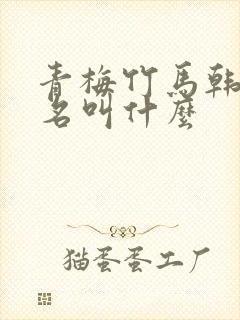 青梅竹馬韩
名叫什麼
猫蛋蛋工厂